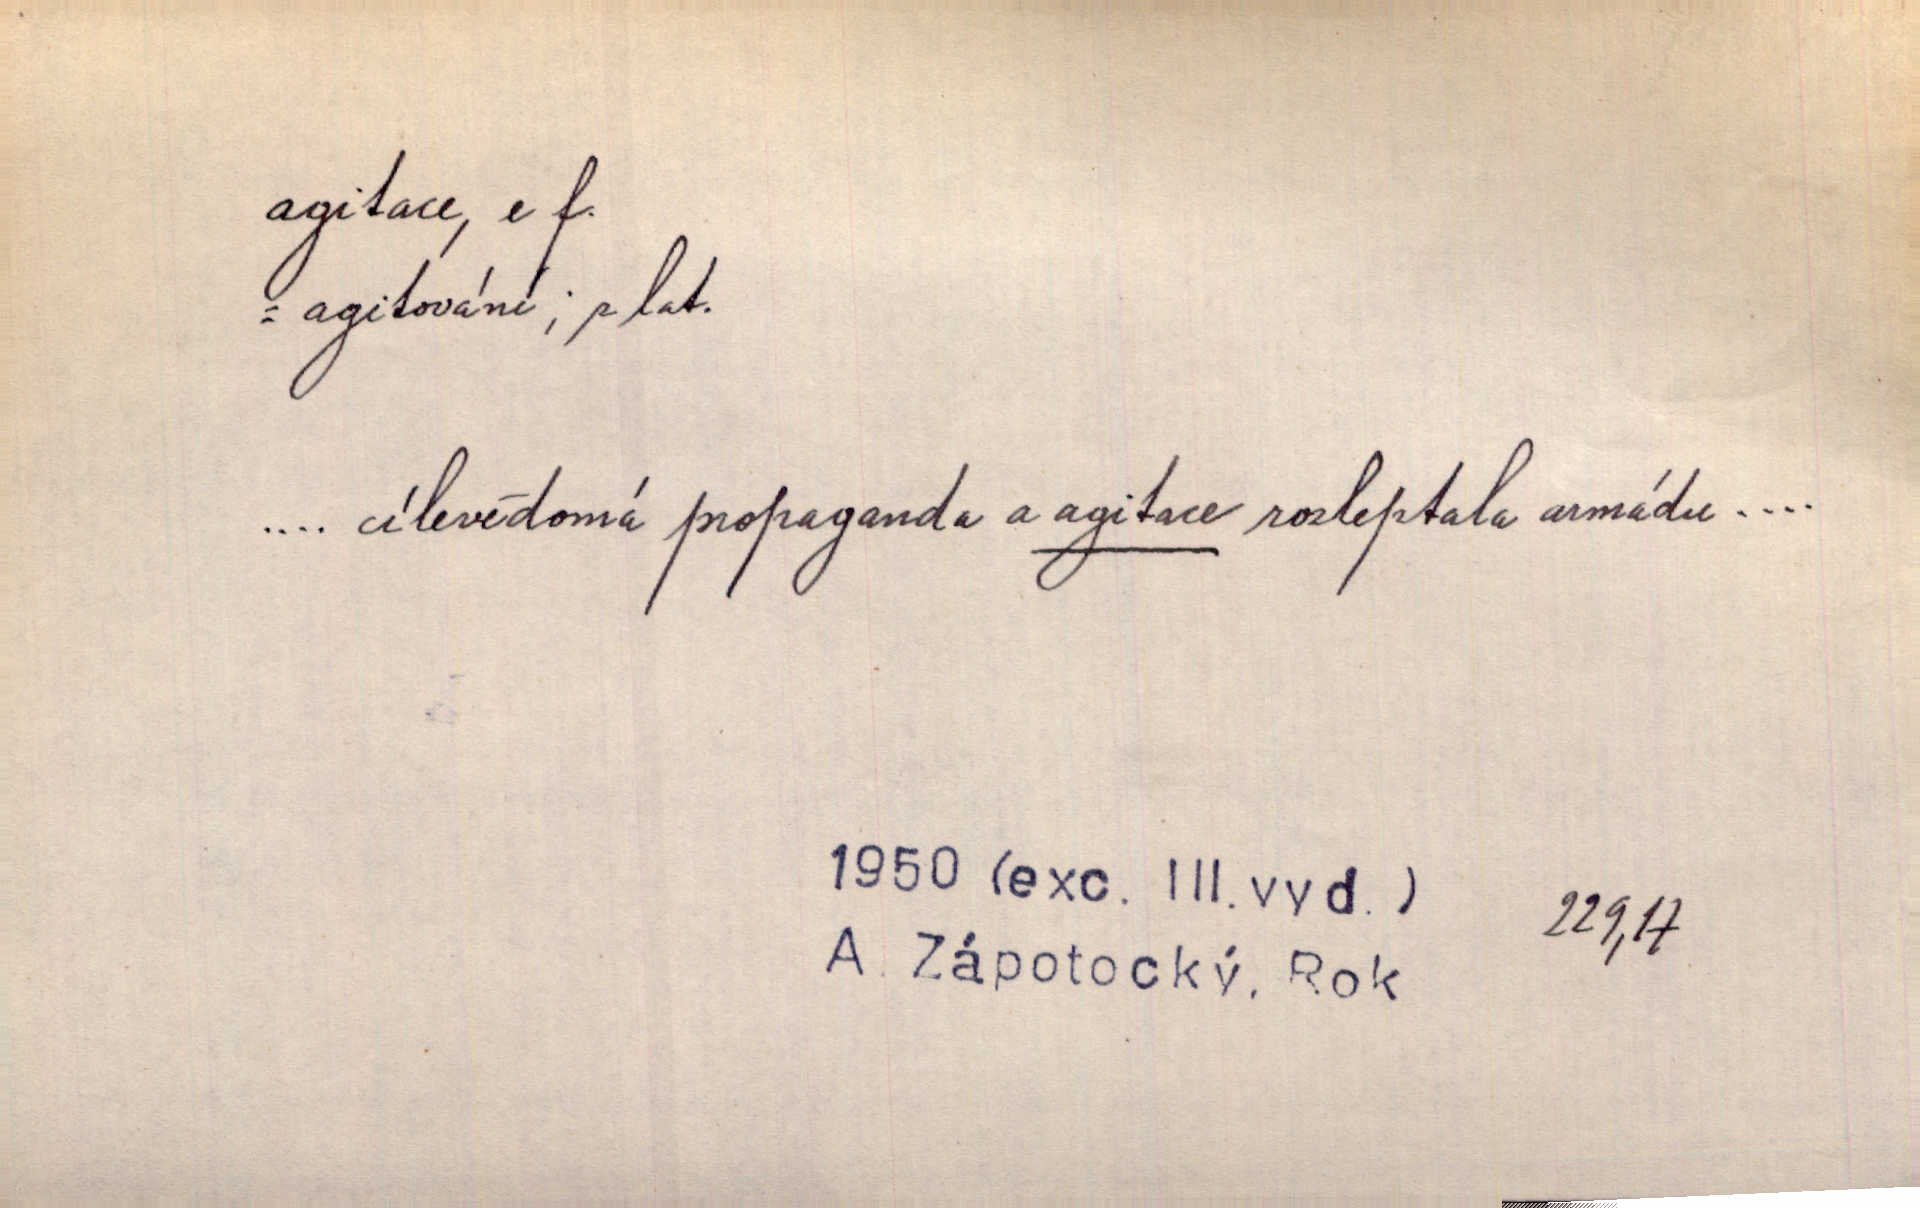 agitace, e f.
= agitování; z lat.
.... cílevědomá propaganda a agitace rozleptala armádu ....
1950 (exc. III. vyd.)
A. Zápotocký, Rok
229,17